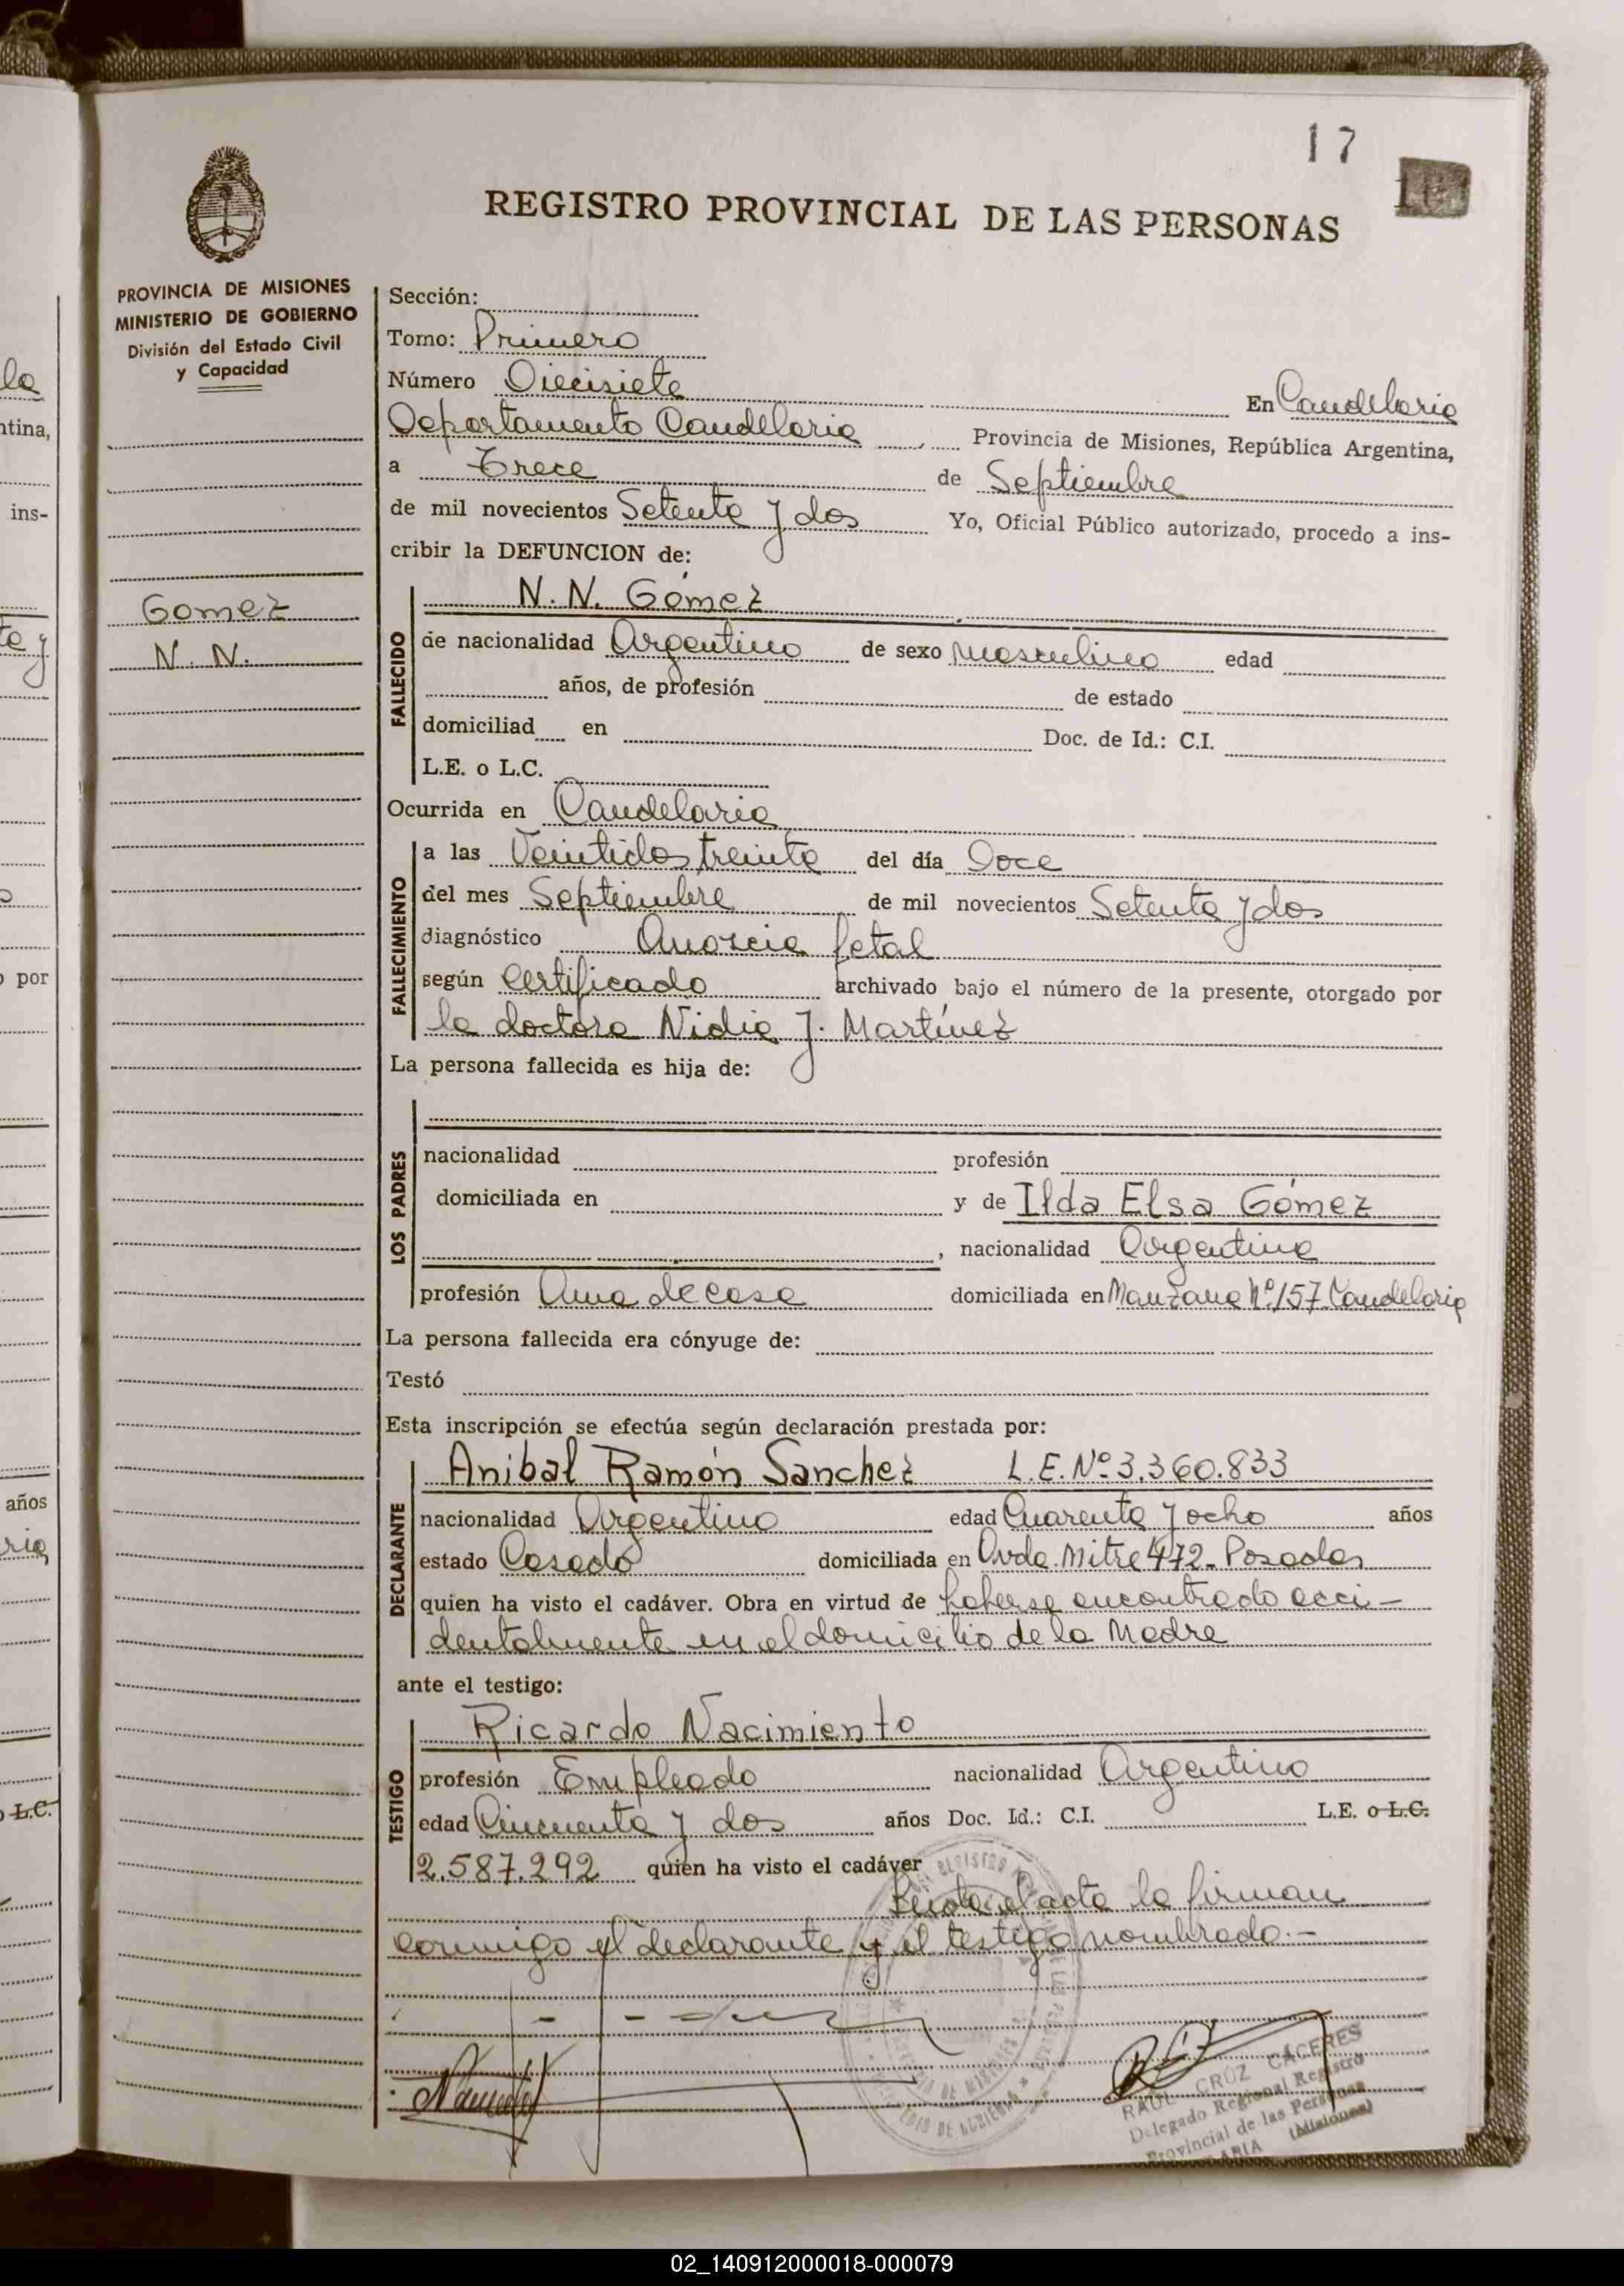 17
REGISTRO PROVINCIAL DE LAS PERSONAS
PROVINCIA DE MISIONES
MINISTERIO DE GOBIERNO
División del Estado Civil
y Capacidad
Gomez
N. N.
Sección:
Tomo: Primero
Número Diecisiete En Candelaria
Departamento Candelaria Provincia de Misiones, República Argentina,
a Trece de Septiembre
de mil novecientos Setenta y dos Yo, Oficial Público autorizado, procedo a ins-
cribir la DEFUNCION de:
FALLECIDO
N. N. Gómez
de nacionalidad Argentino de sexo masculino edad
años, de profesión de estado
domiciliad en Doc. de Id.: C.I.
L.E. o L.C.
Ocurrida en Candelaria
FALLECIMIENTO
a las Veintidos treinta del día Doce
del mes Septiembre de mil novecientos Setenta y dos
diagnóstico Anoxia fetal
según Certificado archivado bajo el número de la presente, otorgado por
la doctora Nidia J. Martínez
La persona fallecida es hija de:
LOS PADRES
nacionalidad profesión
domiciliada en y de Ilda Elsa Gómez
, nacionalidad Argentina
profesión Ama de casa domiciliada en Manzana Nº 157 Candelaria
La persona fallecida era cónyuge de:
Testó
Esta inscripción se efectúa según declaración prestada por:
DECLARANTE
Anibal Ramón Sanchez L.E. Nº 3.360.833
nacionalidad Argentino edad Cuarenta y ocho años
estado Casado domiciliada en Avda. Mitre 472 - Posadas
quien ha visto el cadáver. Obra en virtud de haberse encontrado acci-
dentalmente en el domicilio de la Madre
ante el testigo:
TESTIGO
Ricardo Nacimiento
profesión Empleado nacionalidad Argentino
edad Cincuenta y dos años Doc. Id.: C.I. L.E. o L.C.
2.587.292 quien ha visto el cadáver
el acta la firman
conmigo el declarante y el testigo nombrado.-
RAUL CRUZ CACERES
Delegado Regional Registro
Provincial de las Personas
(Misiones)
la
ntina,
ins-
te y
por
años
ria
L.C.
02_140912000018-000079